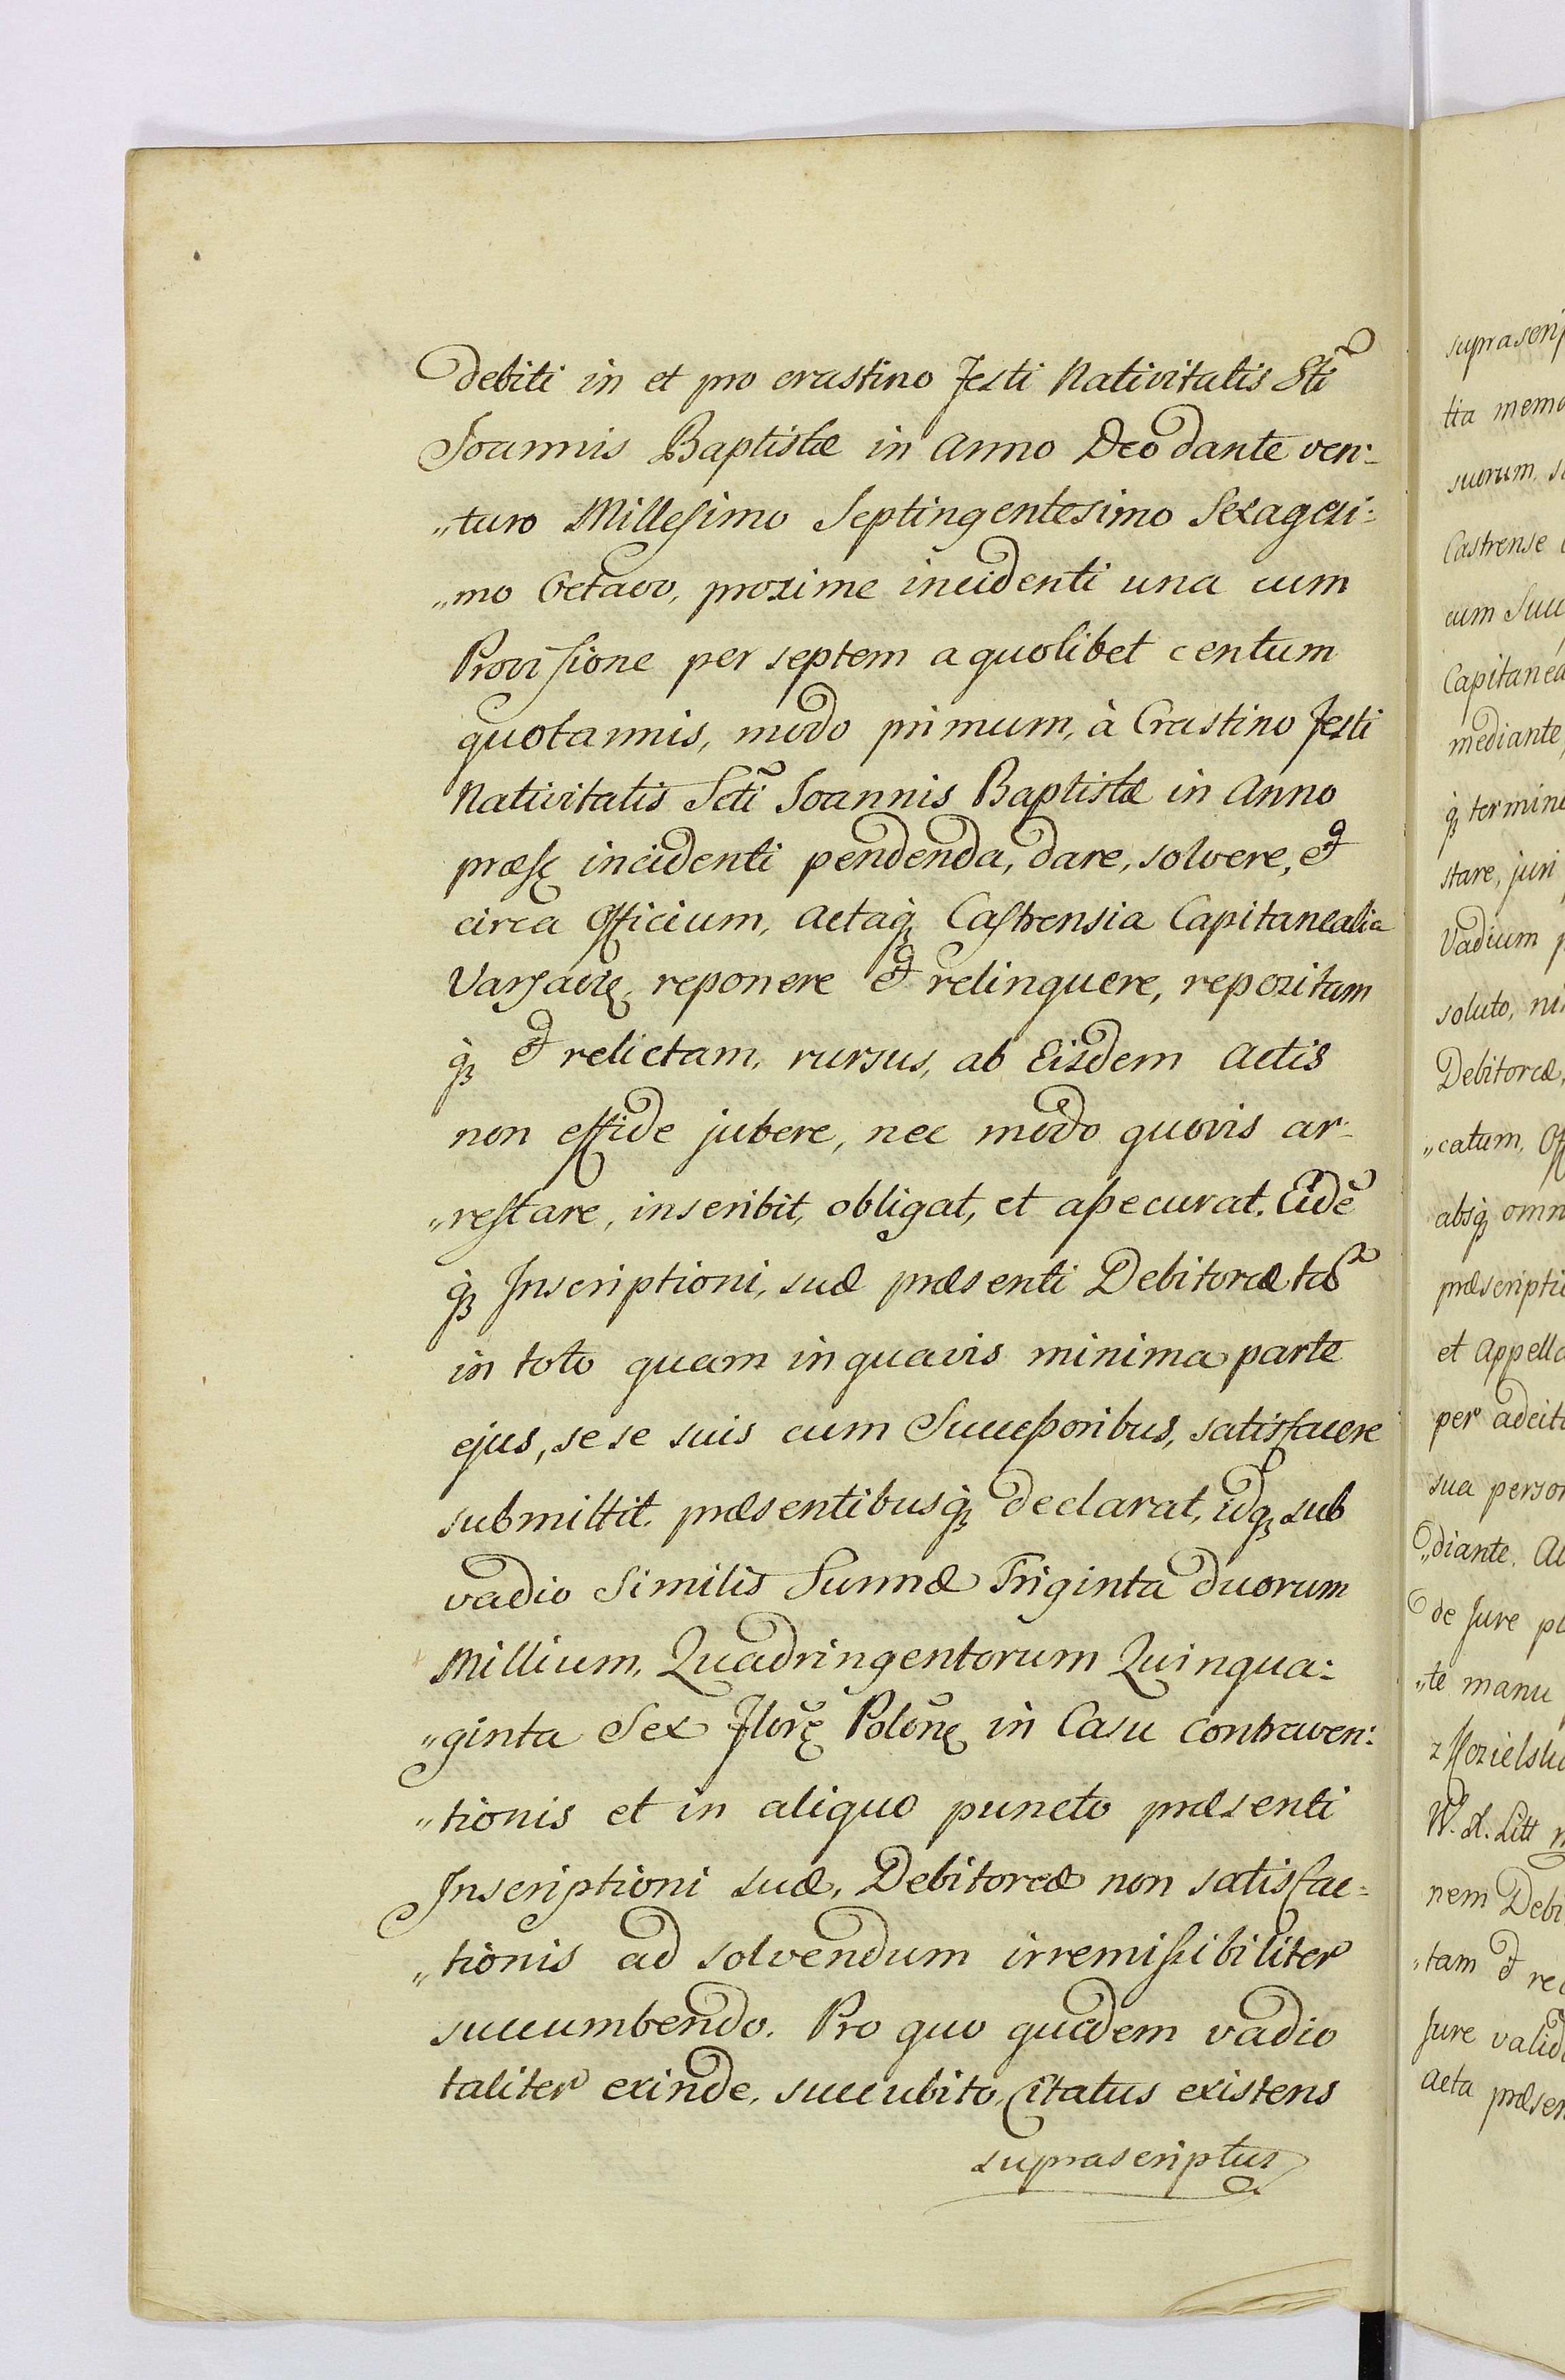 debiti in et pro crastino Festi Nativitatis Sti
Joannis Baptistæ in Anno Deo dante ven-
„turo Millesimo Septingentesimo Sexagesi:
„mo Octavo, proxime incidenti una cum
Provisione per septem a quolibet centum
quotannis, modo primum, à Crastino Festi
Nativitatis Scti Joannis Baptistæ in Anno
præsę incidenti pendenda, dare, solvere, et
circa Officium, Actaq3 Castrensia Capitanealia
Varsavię reponere et relinquere, repositam
q3 et relictam, rursus, ab Eisdem Actis
non effide jubere, nec modo quovis ar-
„restare, inscribit, obligat, et assecurat. Eidē
q3 Inscriptioni, suæ præsenti Debitoreæ tā
in toto quam in quavis minima parte
ejus, se se suis cum Successoribus, satisfacere
submittit. præsentibusq3 declarat, idq3 sub
vadio Similis Sum̄æ Triginta duorum
Millium, Quadringentorum Quinqua:
„ginta Sex Florę Polonę in Casu contraven:
„tionis et in aliquo puncto præsenti
Inscriptioni suæ, Debitoreæ non satisfac=
„tionis ad solvendum irremissibiliter
succumbendo. Pro quo quidem vadio
taliter exinde, succubito, Citatus existens
suprascriptus
suprascrip
tia memo
suorum, s
Castrense
cum Succ
Capitanea
mediante,
q3 termin
stare, juri
Vadium p
soluto, ni
Debitoreæ,
„catum, Off
absq3 omn
præscripti
et Appella
per adcita
sua person
„diante. Ac
de Jure pl
„te manu
z Kozielsk
W. X. Litt
nem Debi
„tam et re
Jure valid
Acta præsen